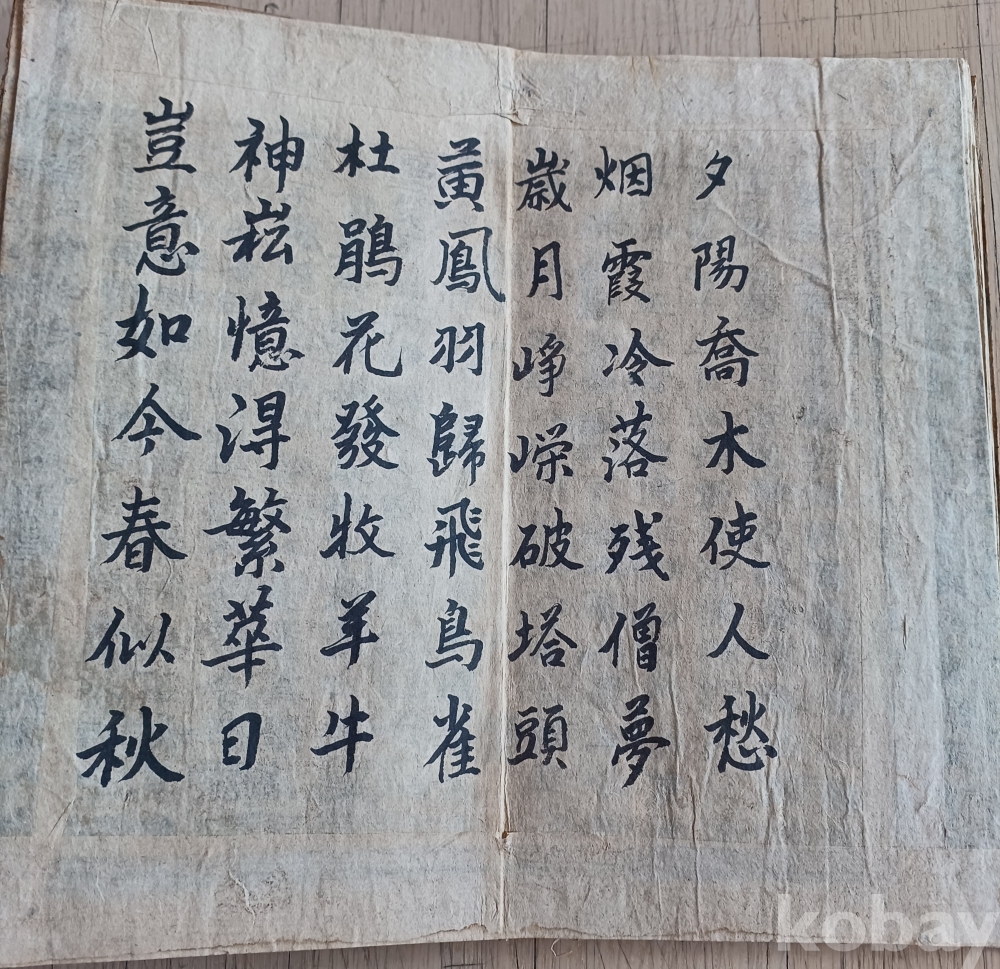 夕陽喬木使人愁
烟霞冷落残僧夢
歳月崢嶸破塔頭
黄鳳羽歸飛鳥雀
杜鵑花發牧羊牛
神崧憶淂繁華日
豈意如今春似秋
kobay